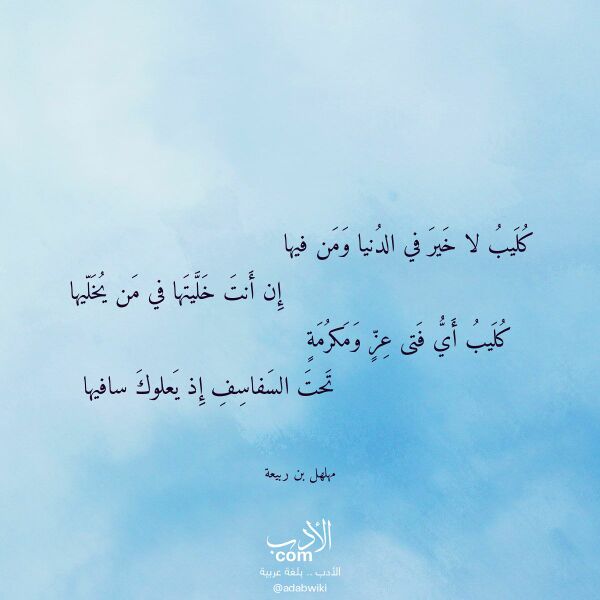 كُلَيبُ لا خَيرَ في الدُنيا وَمَن فيها
إِن أَنتَ خَلَّيتَها في مَن يُخَلّيها
كُلَيبُ أَيُّ فَتى عِزٍّ وَمَكرُمَةٍ
تَحتَ السَفاسِفِ إِذ يَعلوكَ سافيها
مهلهل بن ربيعة
الأدب
com
الأدب .. بلغة عربية
@adabwiki